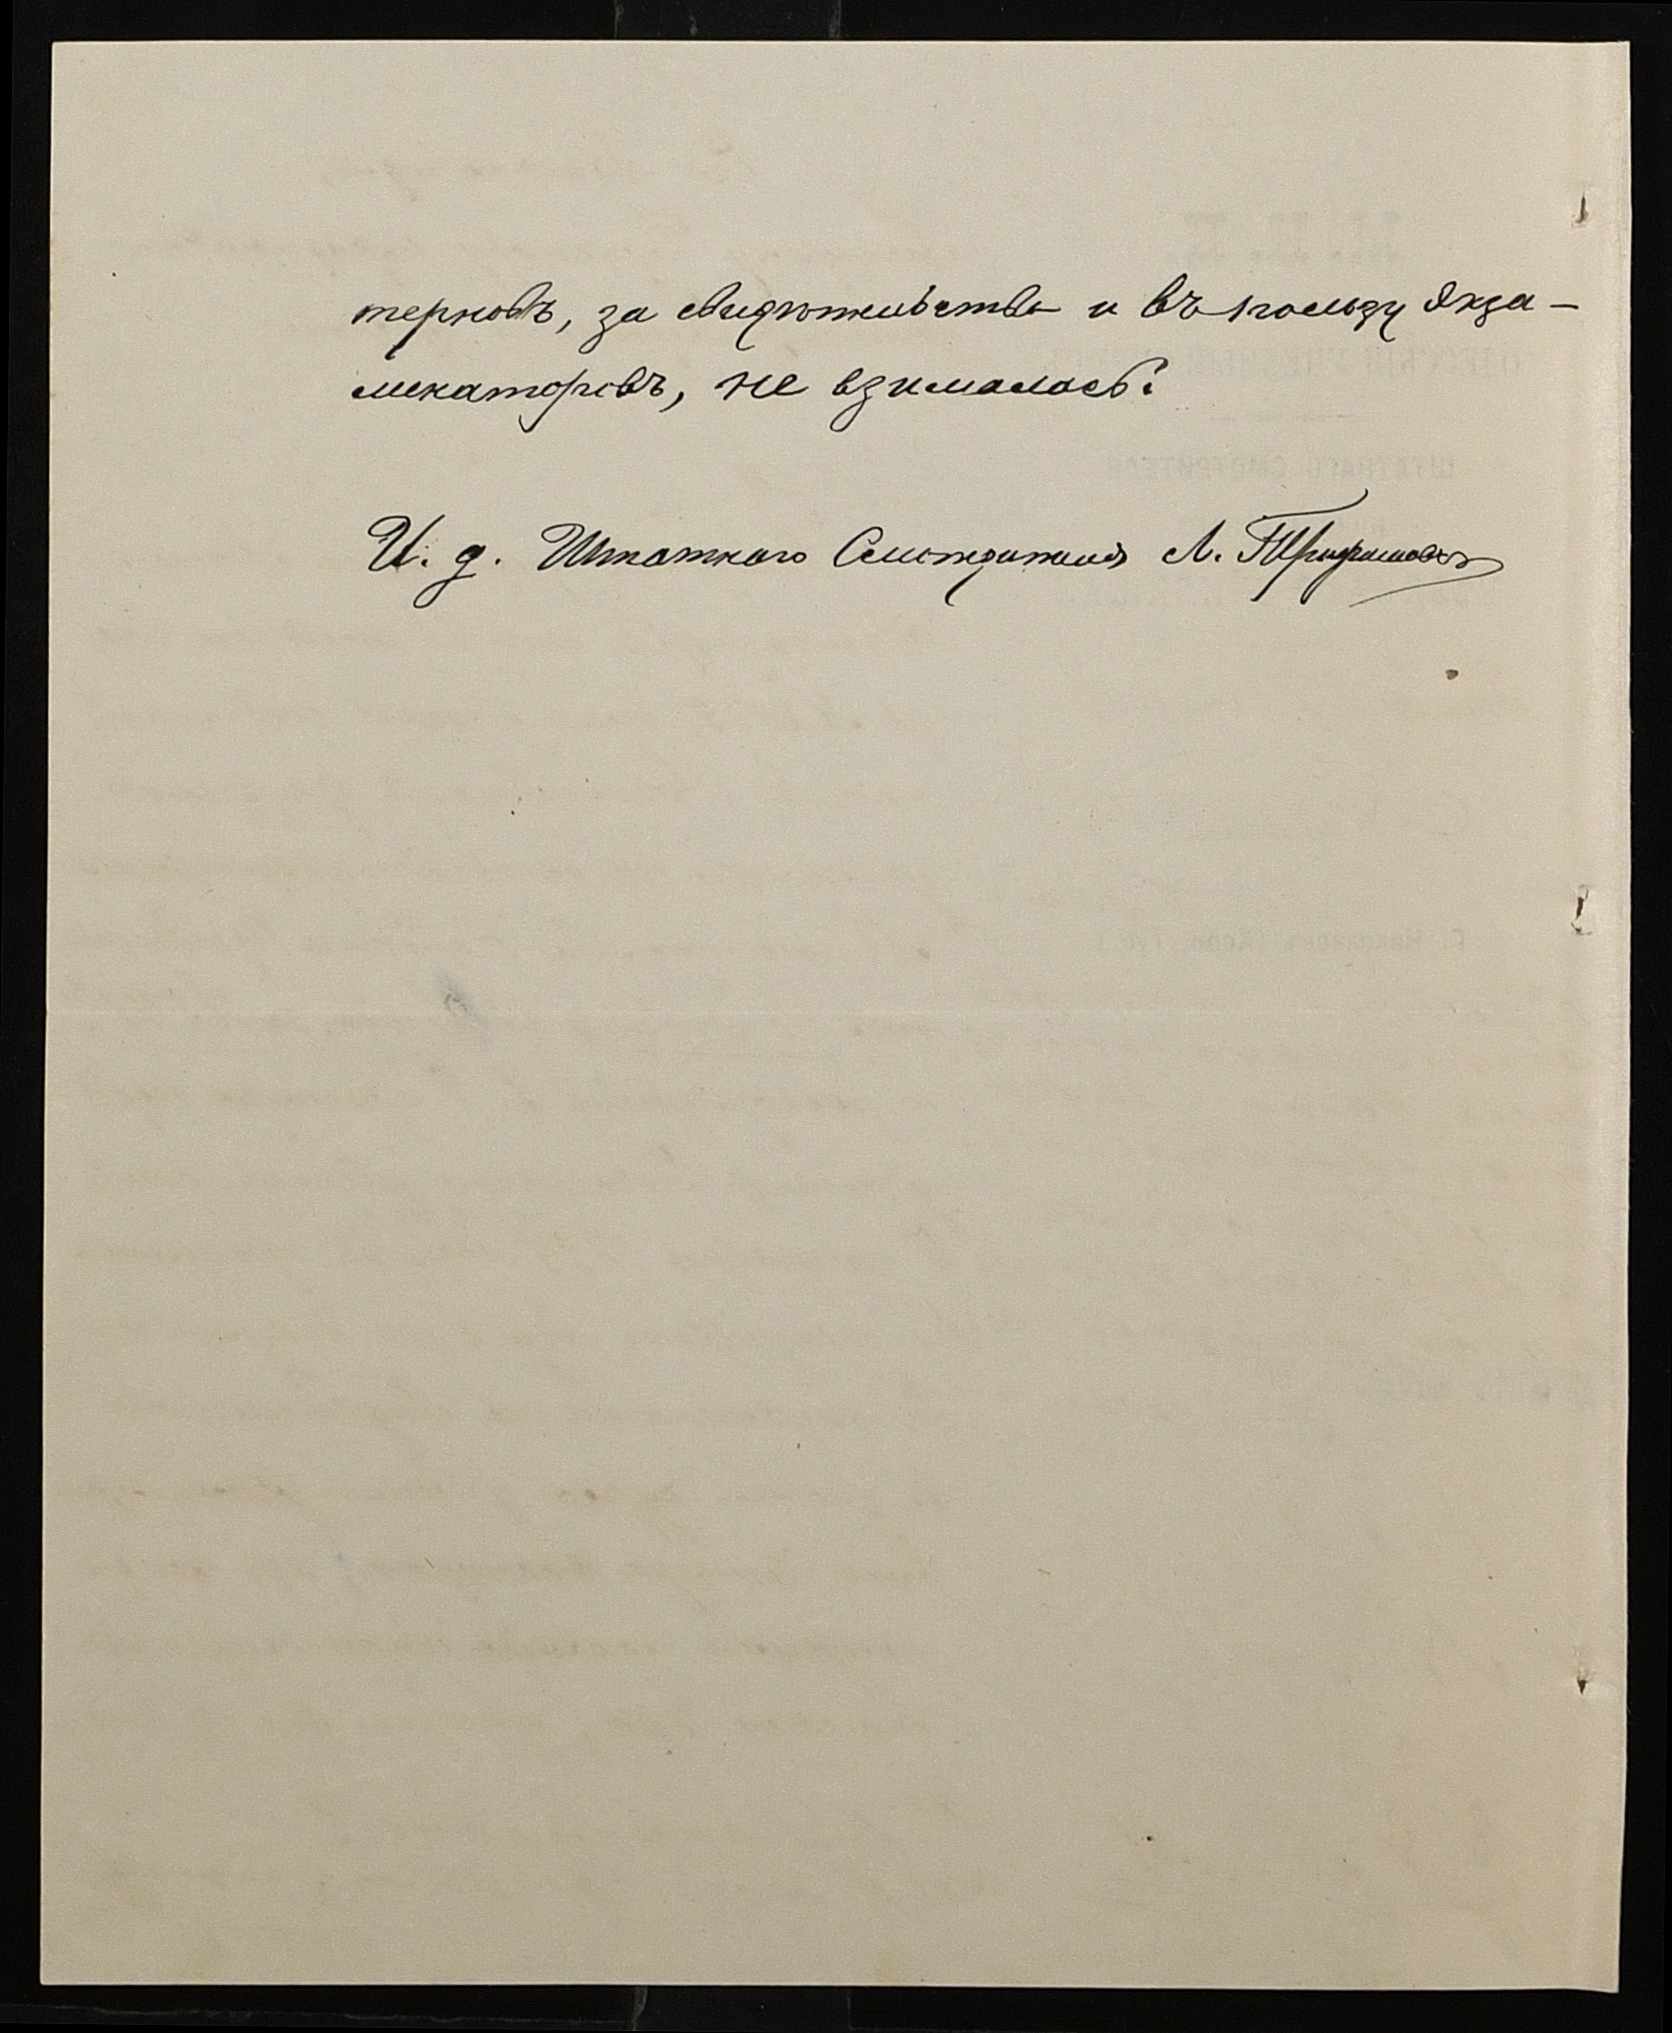 терновъ, за свидѣтельство и въ пользу экза-
менаторовъ, не взималось.
И. д. Штатнаго Смотрителя Л.